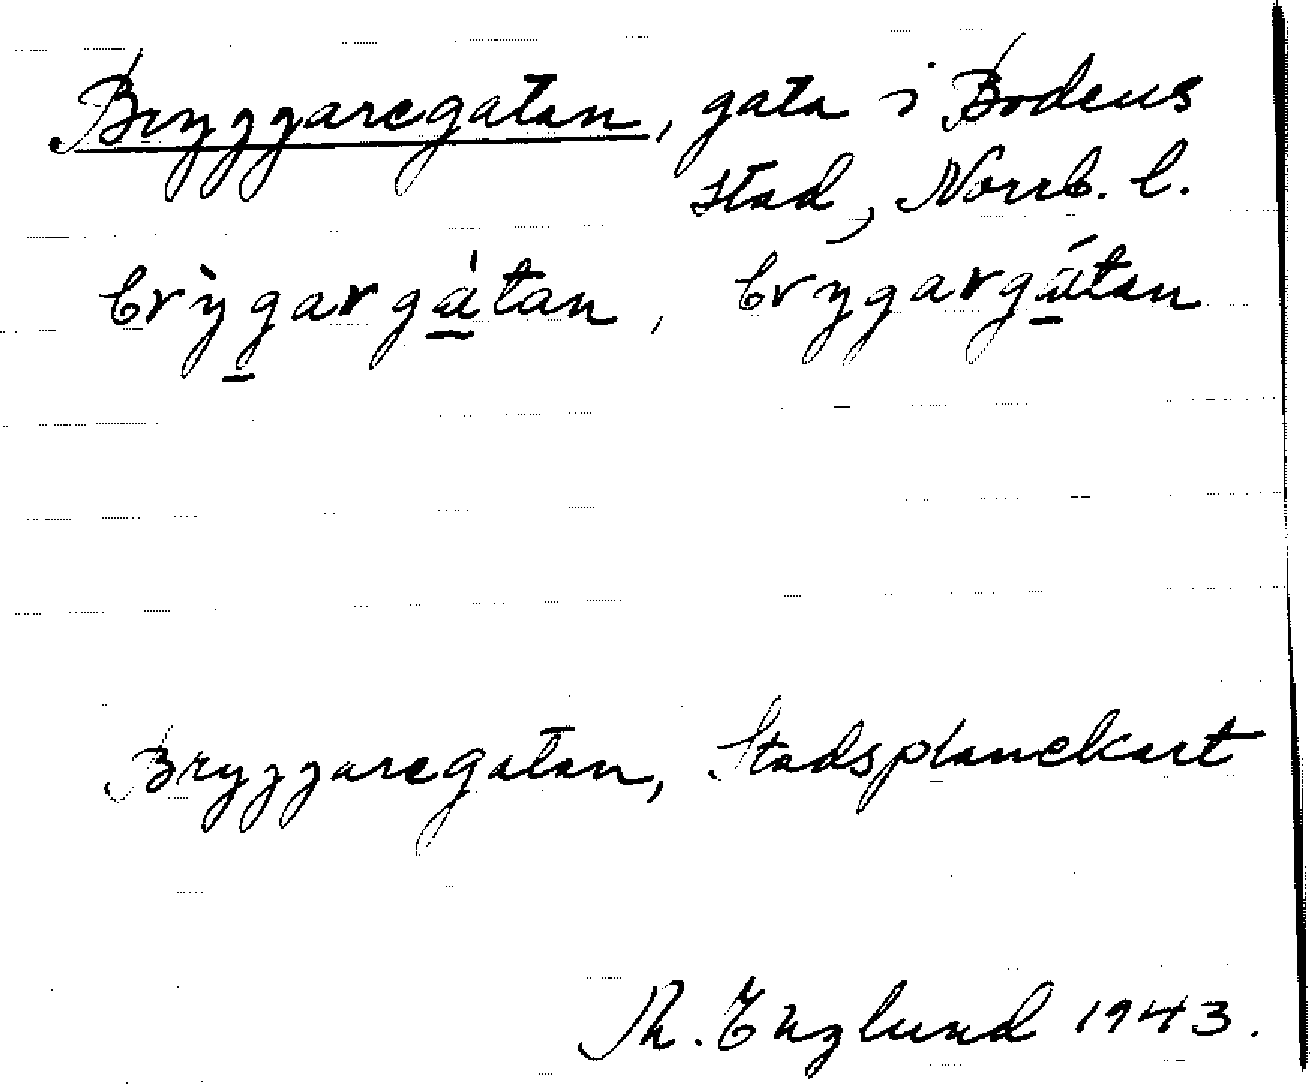 Bryggaregatan, gata i Bodens
stad, Norrb. l.
brỳgargátan, brygargátan
Bryggaregatan, Stadsplanekart
Th. Englund 1943.